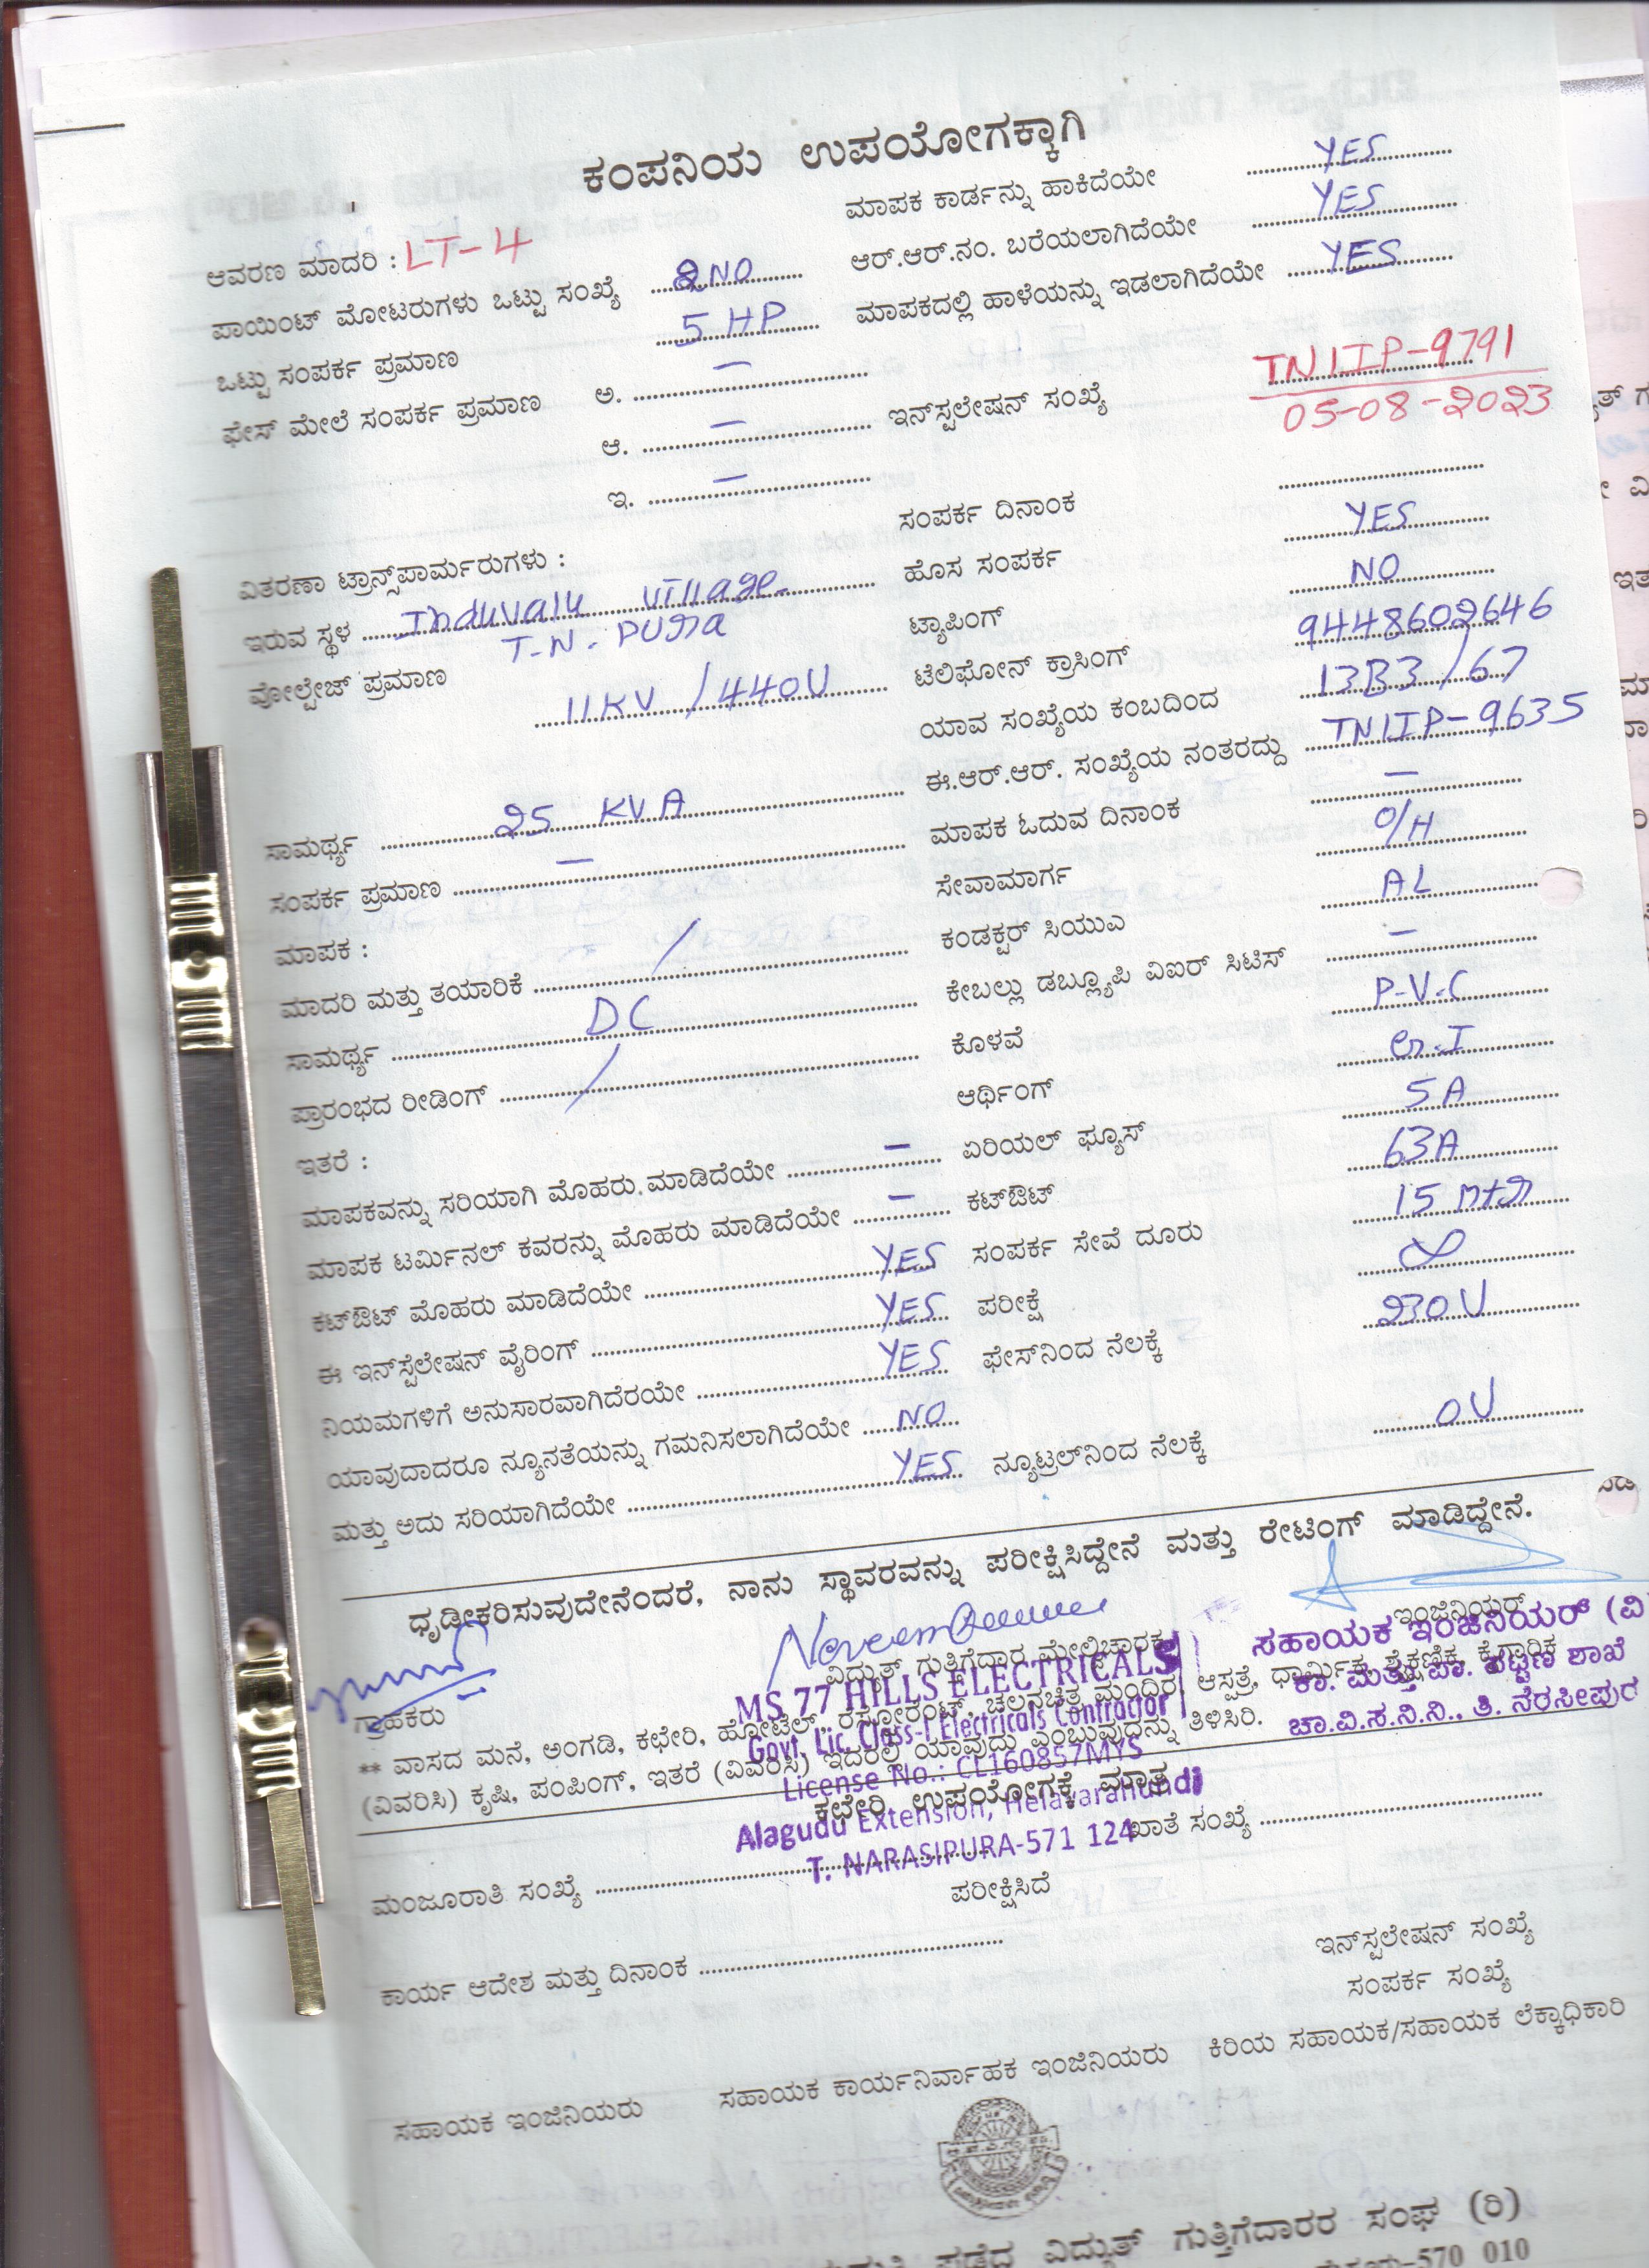 ಕಂಪನಿಯ ಉಪಯೋಗಕ್ಕಾಗಿ
ಆವರಣ ಮಾದರಿ : LT-4
ಪಾಯಿಂಟ್ ಮೋಟರುಗಳು ಒಟ್ಟು ಸಂಖ್ಯೆ 2NO
ಒಟ್ಟು ಸಂಪರ್ಕ ಪ್ರಮಾಣ 5 HP
ಫೇಸ್ ಮೇಲೆ ಸಂಪರ್ಕ ಪ್ರಮಾಣ ಅ. –
ಆ. –
ಇ. –
ವಿತರಣಾ ಟ್ರಾನ್ಸ್‌ಪಾರ್ಮರುಗಳು :
ಇರುವ ಸ್ಥಳ Induvalu village
T-N-PURA
ವೋಲ್ಟೇಜ್ ಪ್ರಮಾಣ 11KV / 440V
ಸಾಮರ್ಥ್ಯ 25 KVA
ಸಂಪರ್ಕ ಪ್ರಮಾಣ –
ಮಾಪಕ :
ಮಾದರಿ ಮತ್ತು ತಯಾರಿಕೆ /
ಸಾಮರ್ಥ್ಯ DC
ಪ್ರಾರಂಭದ ರೀಡಿಂಗ್ /
ಇತರೆ :
ಮಾಪಕವನ್ನು ಸರಿಯಾಗಿ ಮೊಹರು ಮಾಡಿದೆಯೇ –
ಮಾಪಕ ಟರ್ಮಿನಲ್ ಕವರನ್ನು ಮೊಹರು ಮಾಡಿದೆಯೇ –
ಕಟ್‌ಔಟ್ ಮೊಹರು ಮಾಡಿದೆಯೇ YES
ಈ ಇನ್‌ಸ್ಟೆಲೇಷನ್ ವೈರಿಂಗ್ YES
ನಿಯಮಗಳಿಗೆ ಅನುಸಾರವಾಗಿದೆರಯೇ YES
ಯಾವುದಾದರೂ ನ್ಯೂನತೆಯನ್ನು ಗಮನಿಸಲಾಗಿದೆಯೇ NO
ಮತ್ತು ಅದು ಸರಿಯಾಗಿದೆಯೇ YES
ಮಾಪಕ ಕಾರ್ಡನ್ನು ಹಾಕಿದೆಯೇ YES
ಆರ್.ಆರ್.ನಂ. ಬರೆಯಲಾಗಿದೆಯೇ YES
ಮಾಪಕದಲ್ಲಿ ಹಾಳೆಯನ್ನು ಇಡಲಾಗಿದೆಯೇ YES
ಇನ್‌ಸ್ಟಲೇಷನ್ ಸಂಖ್ಯೆ TN1IP-9791
05-08-2023
ಸಂಪರ್ಕ ದಿನಾಂಕ
ಹೊಸ ಸಂಪರ್ಕ YES
ಟ್ಯಾಪಿಂಗ್ NO
ಟೆಲಿಫೋನ್ ಕ್ರಾಸಿಂಗ್ 9448602646
ಯಾವ ಸಂಖ್ಯೆಯ ಕಂಬದಿಂದ 13B3/67
ಈ.ಆರ್.ಆರ್. ಸಂಖ್ಯೆಯ ನಂತರದ್ದು TN1IP-9635
ಮಾಪಕ ಓದುವ ದಿನಾಂಕ –
ಸೇವಾಮಾರ್ಗ O/H
ಕಂಡಕ್ಟರ್ ಸಿಯುಎ AL
ಕೇಬಲ್ಲು ಡಬ್ಲ್ಯೂಪಿ ವಿಐರ್ ಸಿಟಿಸ್ –
ಕೊಳವೆ P-V-C
ಆರ್ಥಿಂಗ್ G.I
ಏರಿಯಲ್ ಫ್ಯೂಸ್ 5A
ಕಟ್‌ಔಟ್ 63A
ಸಂಪರ್ಕ ಸೇವೆ ದೂರು 15 mtr
ಪರೀಕ್ಷೆ
ಫೇಸ್‌ನಿಂದ ನೆಲಕ್ಕೆ 230V
ನ್ಯೂಟ್ರಲ್‌ನಿಂದ ನೆಲಕ್ಕೆ 0V
ಧೃಡೀಕರಿಸುವುದೇನೆಂದರೆ, ನಾನು ಸ್ಥಾವರವನ್ನು ಪರೀಕ್ಷಿಸಿದ್ದೇನೆ ಮತ್ತು ರೇಟಿಂಗ್ ಮಾಡಿದ್ದೇನೆ.
ಗ್ರಾಹಕರು
ವಿದ್ಯುತ್ ಗುತ್ತಿಗೆದಾರ ಮೇಲ್ವಿಚಾರಕ
ಇಂಜಿನಿಯರ್
MS 77 HILLS ELECTRICALS
Govt. Lic. Class-I Electricals Contractor
License No.: CL160857MYS
Alagudu Extension, Helavarahundi
T. NARASIPURA-571 124
ಸಹಾಯಕ ಇಂಜಿನಿಯರ್ (ವಿ
ಕಾ. ಮತ್ತು ಪಾ. ಪಟ್ಟಣ ಶಾಖೆ
ಚಾ.ವಿ.ಸ.ನಿ.ನಿ., ತಿ. ನರಸೀಪುರ
** ವಾಸದ ಮನೆ, ಅಂಗಡಿ, ಕಛೇರಿ, ಹೋಟೆಲ್, ರೆಸ್ಟೋರಂಟ್, ಚಲನಚಿತ್ರ ಮಂದಿರ, ಆಸ್ಪತ್ರೆ, ಧಾರ್ಮಿಕ, ಶೈಕ್ಷಣಿಕ, ಕೈಗಾರಿಕ
(ವಿವರಿಸಿ) ಕೃಷಿ, ಪಂಪಿಂಗ್, ಇತರೆ (ವಿವರಿಸಿ) ಇದರಲ್ಲಿ ಯಾವುದು ಎಂಬುವುದನ್ನು ತಿಳಿಸಿರಿ.
ಕಛೇರಿ ಉಪಯೋಗಕ್ಕೆ ಮಾತ್ರ
ಮಂಜೂರಾತಿ ಸಂಖ್ಯೆ
ಖಾತೆ ಸಂಖ್ಯೆ
ಪರೀಕ್ಷಿಸಿದೆ
ಕಾರ್ಯ ಆದೇಶ ಮತ್ತು ದಿನಾಂಕ
ಇನ್‌ಸ್ಟಲೇಷನ್ ಸಂಖ್ಯೆ
ಸಂಪರ್ಕ ಸಂಖ್ಯೆ
ಸಹಾಯಕ ಇಂಜಿನಿಯರು ಸಹಾಯಕ ಕಾರ್ಯನಿರ್ವಾಹಕ ಇಂಜಿನಿಯರು ಕಿರಿಯ ಸಹಾಯಕ/ಸಹಾಯಕ ಲೆಕ್ಕಾಧಿಕಾರಿ
ಪಡೆದ ವಿದ್ಯುತ್ ಗುತ್ತಿಗೆದಾರರ ಸಂಘ (ರಿ)
570 010